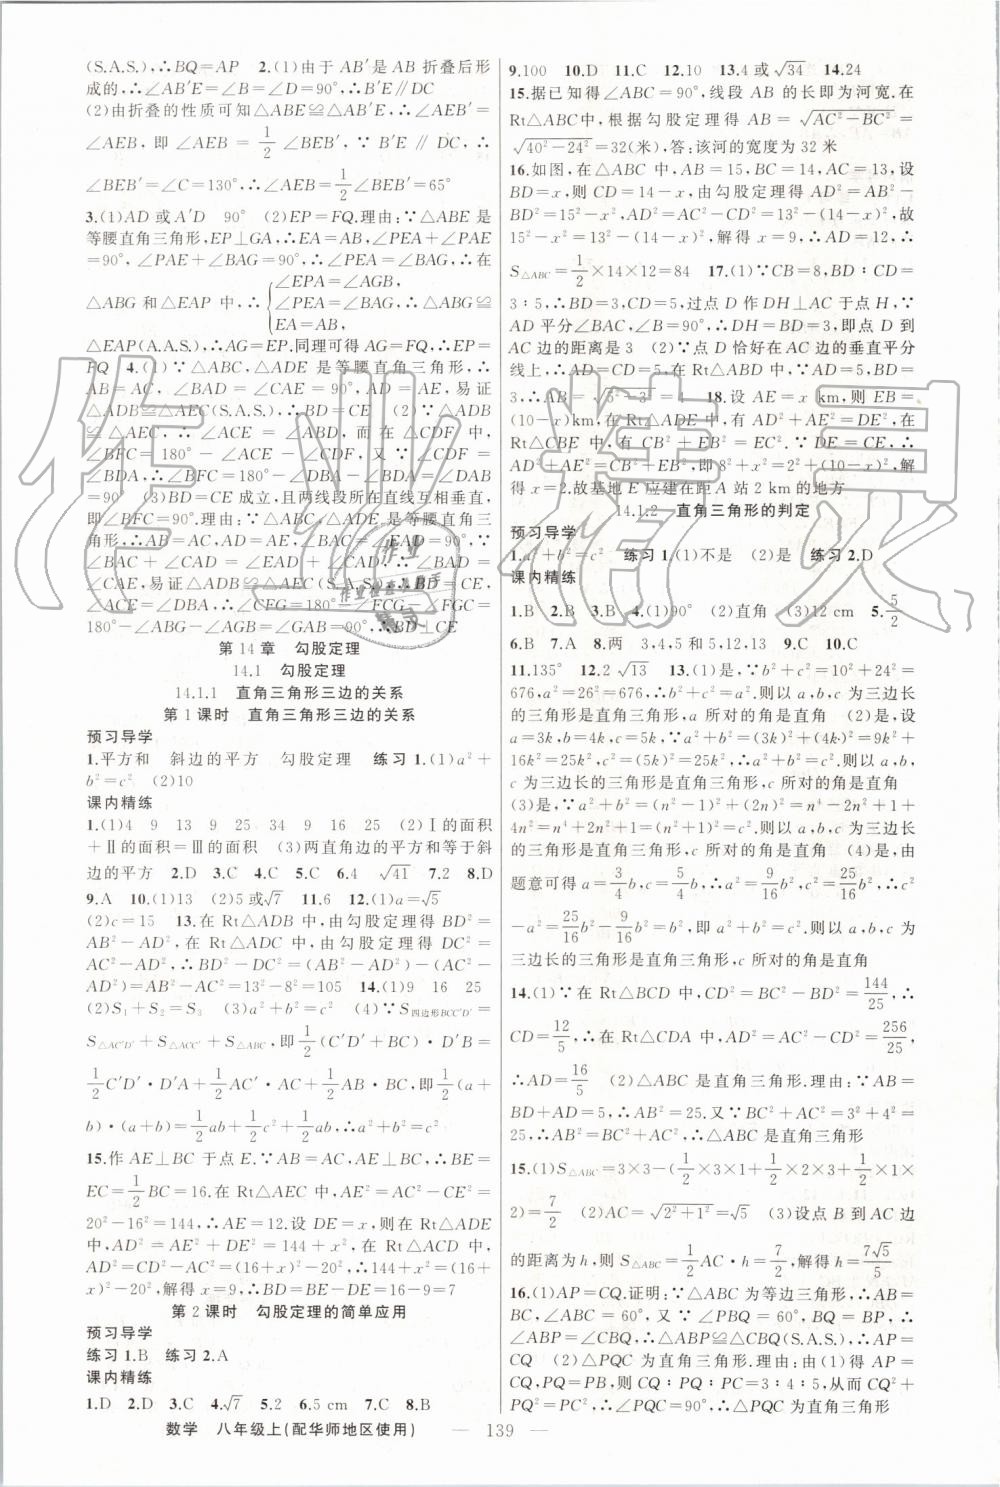 (S.A.S.),∴BQ=AP 2.(1)由于 AB′是 AB 折叠后形
成的,∴∠AB′E=∠B=∠D=90°,∴B′E∥DC
(2)由折叠的性质可知△ABE≌△AB′E,∴∠AEB′=
∠AEB,即∠AEB=1/2∠BEB′,∵B′E∥DC,∴
∠BEB′=∠C=130°,∴∠AEB=1/2∠BEB′=65°
3.(1)AD 或 A′D 90° (2)EP=FQ.理由:∵△ABE 是
等腰直角三角形,EP⊥GA,∴EA=AB,∠PEA+∠PAE
=90°,∠PAE+∠BAG=90°,∴∠PEA=∠BAG,∴在
△ABG 和△EAP 中,∴{∠EPA=∠AGB,
∠PEA=∠BAG,∴△ABG≌
EA=AB,
△EAP(A.A.S.),∴AG=EP.同理可得AG=FQ,∴EP=
FQ 4.(1)∵△ABC,△ADE 是等腰直角三角形,∴
AB=AC,∠BAD=∠CAE=90°,AD=AE,易证
△ADB≌△AEC(S.A.S.),∴BD=CE (2)∵△ADB
≌△AEC,∴∠ACE=∠ABD,而在△CDF 中,
∠BFC=180°-∠ACE-∠CDF,又∵∠CDF=
∠BDA,∴∠BFC=180°-∠DBA-∠BDA=∠DAB
=90° (3)BD=CE 成立,且两线段所在直线互相垂直,
即∠BFC=90°.理由:∵△ABC,△ADE 是等腰直角三
角形,∴AB=AC,AD=AE,∠BAC=∠DAE=90°,∵
∠BAC+∠CAD=∠DAE+∠CAD,∴∠BAD=
∠CAE,易证△ADB≌△AEC(S.A.S.),∴BD=CE,
∠ABF=∠DCE,∴∠CFG=180°-∠FCG-∠FGC=
180°-∠ABG-∠AGF=∠BAG=90°,∴BD⊥CE
第14章 勾股定理
14.1 勾股定理
14.1.1 直角三角形三边的关系
第1课时 直角三角形三边的关系
预习导学
1.平方和 斜边的平方 勾股定理 练习1.(1)a²+
b²=c² (2)10
课内精练
1.(1)4 9 13 9 25 34 9 16 25 (2)Ⅰ的面积
+Ⅱ的面积=Ⅲ的面积 (3)两直角边的平方和等于斜
边的平方 2.D 3.C 4.C 5.C 6.4 √41 7.2 8.D
9.A 10.(1)13 (2)5或√7 11.6 12.(1)a=√5
(2)c=15 13.在 Rt△ADB 中,由勾股定理得 BD²=
AB²-AD²,在 Rt△ADC 中,由勾股定理得 DC²=
AC²-AD²,∴BD²-DC²=(AB²-AD²)-(AC²-
AD²)=AB²-AC²=13²-8²=105 14.(1)9 16 25
(2)S₁+S₂=S₃ (3)a²+b²=c² (4)∵S四边形BCC′D′=
S△AC′D′+S△ACC′+S△ABC,即1/2(C′D′+BC)·D′B=
1/2C′D′·D′A+1/2AC′·AC+1/2AB·BC,即1/2(a+
b)·(a+b)=1/2ab+1/2c²+1/2ab,∴a²+b²=c²
15.作 AE⊥BC 于点 E.∵AB=AC,AE⊥BC,∴BE=
EC=1/2BC=16.在 Rt△AEC 中,AE²=AC²-CE²=
20²-16²=144,∴AE=12.设 DE=x,则在 Rt△ADE
中,AD²=AE²+DE²=144+x²,在 Rt△ACD 中,
AD²=CD²-AC²=(16+x)²-20²,∴144+x²=(16+
x)²-20²,解得 x=9,∴BD=BE-DE=16-9=7
第2课时 勾股定理的简单应用
预习导学
练习1.B 练习2.A
课内精练
1.D 2.D 3.C 4.√7 5.2 6.5 cm 7.C 8.B
数学 八年级上(配华师地区使用) — 139 —
9.100 10.D 11.C 12.10 13.4或√34 14.24
15.据已知得∠ABC=90°,线段 AB 的长即为河宽.在
Rt△ABC中,根据勾股定理得 AB=√AC²-BC²=
√40²-24²=32(米),答:该河的宽度为 32 米
16.如图,在△ABC 中,AB=15,BC=14,AC=13,设
BD=x,则 CD=14-x,由勾股定理得 AD²=AB²-
BD²=15²-x²,AD²=AC²-CD²=13²-(14-x)²,故
15²-x²=13²-(14-x)²,解得 x=9,∴AD=12,∴
S△ABC=1/2×14×12=84 17.(1)∵CB=8,BD∶CD=
3∶5,∴BD=3,CD=5,过点 D 作 DH⊥AC 于点 H,∵
AD 平分∠BAC,∠B=90°,∴DH=BD=3,即点 D 到
AC 边的距离是 3 (2)∵点 D 恰好在 AC 边的垂直平分
线上,∴AD=CD=5,在 Rt△ABD 中,∵AD=5,BD=
3,∴AB=√5²-3²=4 18.设 AE=x km,则 EB=
(10-x)km,在 Rt△ADE 中,有 AD²+AE²=DE²,在
Rt△CBE 中,有 CB²+EB²=EC².∵DE=CE,∴
AD²+AE²=CB²+EB²,即8²+x²=2²+(10-x)²,解
得 x=2.故基地 E 应建在距 A 站 2 km 的地方
14.1.2 直角三角形的判定
预习导学
1.a²+b²=c² 练习1.(1)不是 (2)是 练习2.D
课内精练
1.B 2.B 3.B 4.(1)90° (2)直角 (3)12 cm 5.5/2
6.B 7.A 8.两 3,4,5 和 5,12,13 9.C 10.C
11.135° 12.2√13 13.(1)是,∵b²+c²=10²+24²=
676,a²=26²=676,∴b²+c²=a².则以 a,b,c 为三边长
的三角形是直角三角形,a 所对的角是直角 (2)是,设
a=3k,b=4k,c=5k,∵a²+b²=(3k)²+(4k)²=9k²+
16k²=25k²,c²=(5k)²=25k²,∴a²+b²=c².则以 a,b,
c 为三边长的三角形是直角三角形,c 所对的角是直角
(3)是,∵a²+b²=(n²-1)²+(2n)²=n⁴-2n²+1+
4n²=n⁴+2n²+1=(n²+1)²=c².则以 a,b,c 为三边长
的三角形是直角三角形,c 所对的角是直角 (4)是,由
题意可得 a=3/4b,c=5/4b,∴a²=9/16b²,c²=25/16b²,∴c²
-a²=25/16b²-9/16b²=b²,即 c²=a²+b².则以 a,b,c 为
三边长的三角形是直角三角形,c 所对的角是直角
14.(1)∵在 Rt△BCD 中,CD²=BC²-BD²=144/25,∴
CD=12/5,∴在 Rt△CDA 中,AD²=AC²-CD²=256/25,
∴AD=16/5 (2)△ABC 是直角三角形.理由:∵AB=
BD+AD=5,∴AB²=25.又∵BC²+AC²=3²+4²=
25,∴AB²=BC²+AC²,∴△ABC 是直角三角形
15.(1)S△ABC=3×3-(1/2×3×1+1/2×2×3+1/2×1×
2)=7/2 (2)AC=√2²+1²=√5 (3)设点 B 到 AC 边
的距离为 h,则 S△ABC=1/2AC·h=7/2,解得 h=7√5/5
16.(1)AP=CQ.证明:∵△ABC 为等边三角形,∴AB=
BC,∠ABC=60°,又∵∠PBQ=60°,BQ=BP,∴
∠ABP=∠CBQ,∴△ABP≌△CBQ(S.A.S.),∴AP=
CQ (2)△PQC 为直角三角形.理由:由(1)得 AP=
CQ,PQ=PB,则△PQC 的三边长与已知相等,从而
△PQC 为直角三角形